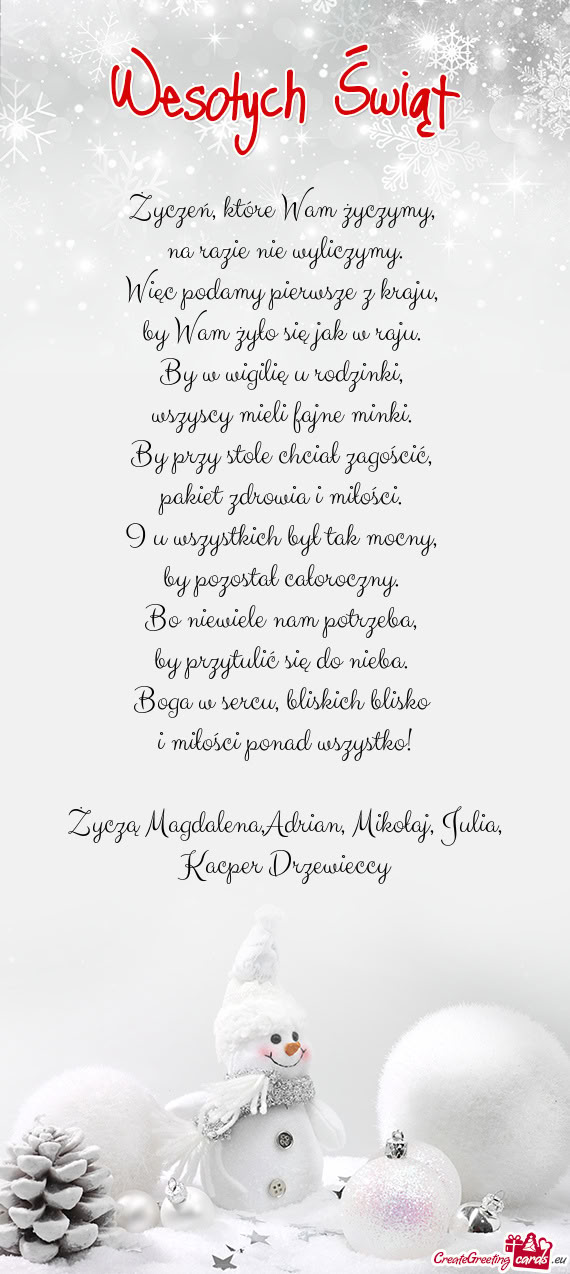 Wesołych Świąt
Życzeń, które Wam życzymy,
na razie nie wyliczymy.
Więc podamy pierwsze z kraju,
by Wam żyło się jak w raju.
By w wigilię u rodzinki,
wszyscy mieli fajne minki.
By przy stole chciał zagościć,
pakiet zdrowia i miłości.
I u wszystkich był tak mocny,
by pozostał całoroczny.
Bo niewiele nam potrzeba,
by przytulić się do nieba.
Boga w sercu, bliskich blisko
i miłości ponad wszystko!
Życzą Magdalena,Adrian, Mikołaj, Julia,
Kacper Drzewieccy
CreateGreeting cards .eu